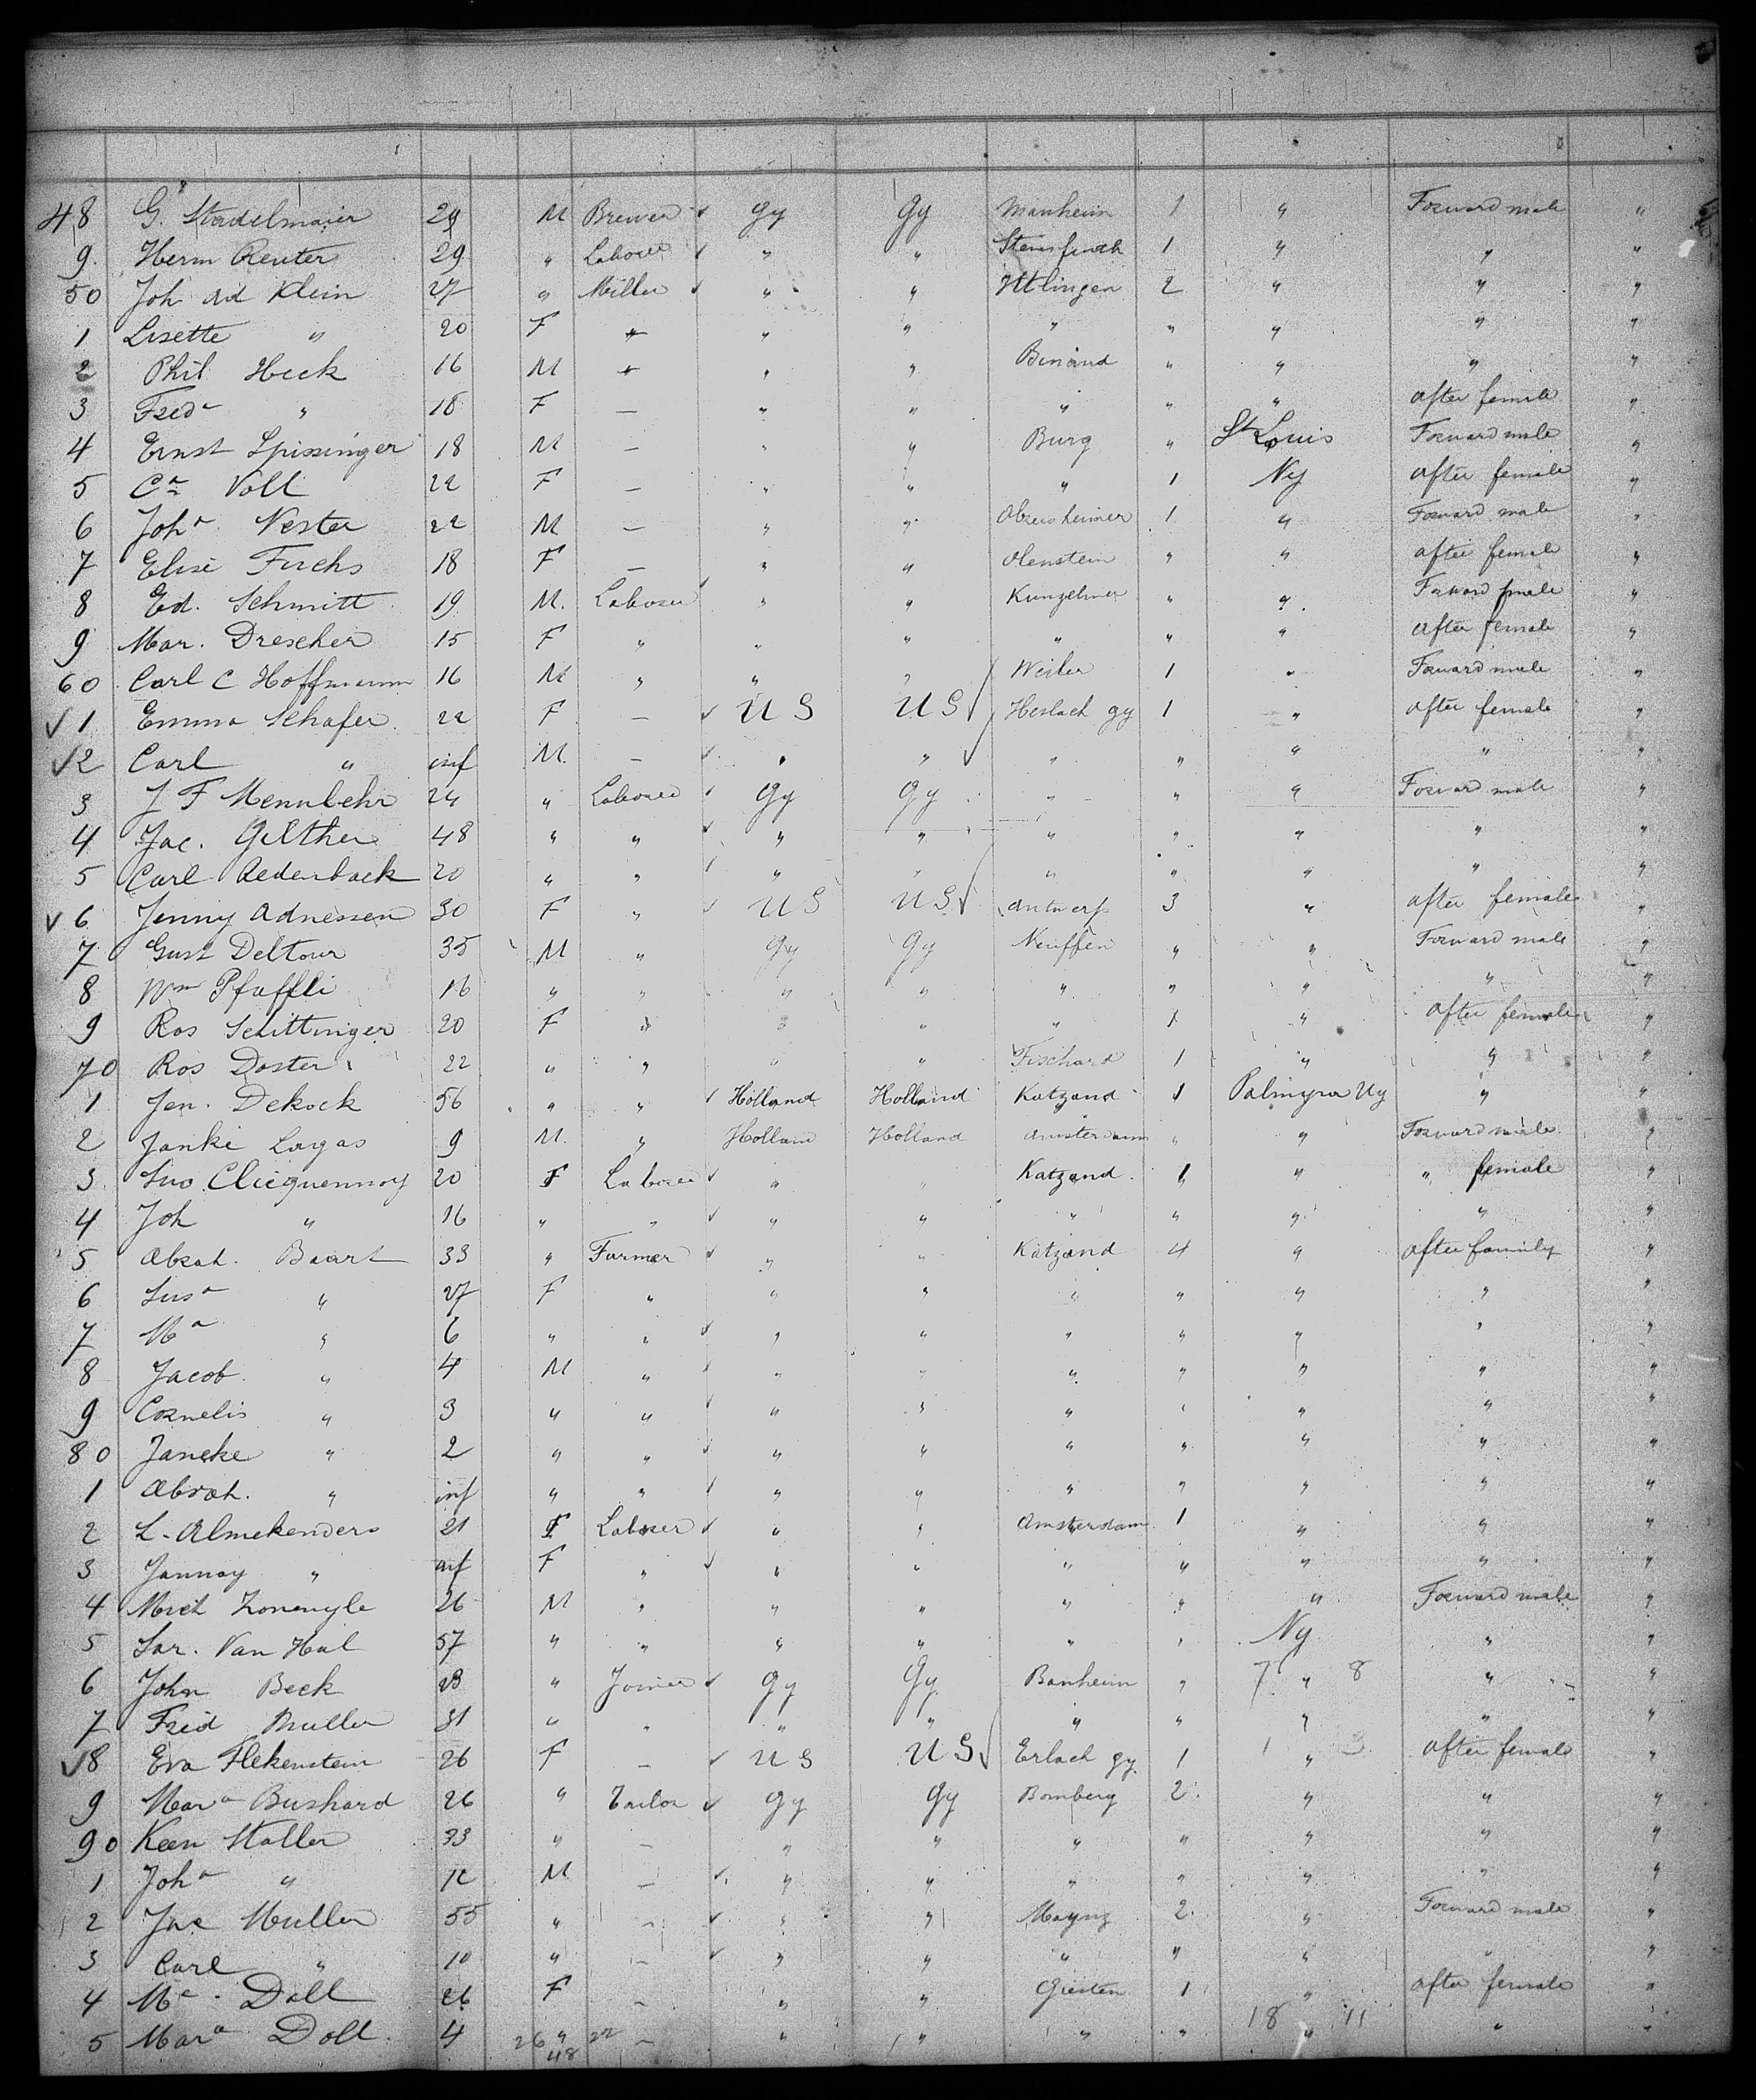 48 G. Stadelmaier 29 M Brewer ✓ Gy Gy Manheim 1 " Forward male "
9 Herm Reuter 29 " Laborer ✓ " " 1 " " "
50 Joh Ad Klein 27 " Miller ✓ " " Ittlingen 2 " " "
1 Lisette " 20 F " " " " " " " "
2 Phil Heck 16 M " " " Binand " " " "
3 Freda " 18 F — " " " " " after female "
4 Ernst Spissinger 18 M — " " Burg " St Louis Forward male "
5 Ca Voll 22 F — " " " 1 Ny after female "
6 Joha Nester 22 M — " " 1 " Forward male "
7 Elise Fuchs 18 F — " " Olenstein " " after female "
8 Ed. Schmitt 19 M. Laborer ✓ " " " " Forward male "
9 Mar. Drescher 15 F " " " " " " after female "
60 Carl C Hoffmann 16 M " " " Weiler 1 " Forward male "
✓ 1 Emma Schafer 22 F — ✓ US US ✓ Herlach gy 1 " after female "
✓ 2 Carl " inf M. — ✓ " " ✓ " " " " "
3 J F Mennbehr 24 " Laborer ✓ Gy Gy " " " Forward male "
4 Jac. Gilther 48 " " ✓ " " " " " " "
5 Carl Aedenback 20 " " ✓ " " " " " " "
✓ 6 Jenny Adnessen 30 F " ✓ US US ✓ Antwerp 3 " after female "
7 Gust Deltour 35 M " Gy Gy Neuffen " " Forward male "
8 Wm Pfaffli 16 " " " " " " " " "
9 Ros Schittinger 20 F " " " " 1 " after female "
70 Ros Doster 22 " " " " Fischard 1 " " "
1 Jen. Dekock 56 " " ✓ Holland Holland Katzand 1 Palmyra Ny " "
2 Janki Lagas 9 M. " Holland Holland Amsterdam " " Forward male "
3 Clicquennoy 20 F Laborer ✓ " " Katzand 1 " " female "
4 Joh " 16 " " ✓ " " " " " " "
5 Abrah. Baart 33 " Farmer ✓ " " Katzand 4 " after family "
6 Susa " 27 F " " " " " " " "
7 Ma " 6 " " ✓ " " " " " " "
8 Jacob " 4 M " ✓ " " " " " " "
9 Cornelis " 3 " " ✓ " " " " " " "
80 Janeke " 2 " " ✓ " " " " " " "
1 Abrah. " inf " " ✓ " " " " " " "
2 L. Almekenders 21 F Laborer ✓ " " Amsterdam 1 " " "
3 Jannay " inf F " ✓ " " " " " " "
4 Mich 26 M " " " " " " Forward male "
5 Sar. Van Hal 57 " " " " " " Ny " "
6 John Beck 23 " Joiner ✓ Gy Gy Banheim " 7 " 8 " "
7 Fried Muller 31 " " " " " " " " "
✓ 8 Eva Flekenstein 26 F — ✓ US US ✓ Erlach gy. 1 1 " 3 after female "
9 Mara Bushard 26 " Tailor ✓ Gy Gy Bomberg 2 " " "
90 Keen Staller 33 " — " " " " " " "
1 Joha " M — ✓ " " " " " " "
2 Jac Muller 55 " — ✓ " " Maynz 2 " Forward male "
3 Carl " 10 " — ✓ " " " " " " "
4 Ma. Doll 26 F — " " Giesten 1 " after female "
5 Mara Doll 4 26 " 22 — " " " " 18 " 11 " "
48